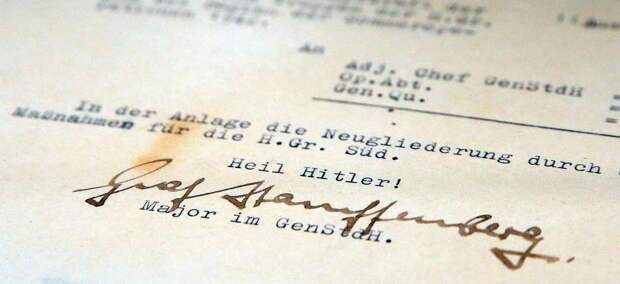 An
Adj. Chef GenStdH
Op.Abt.
Gen.Qu.
In der Anlage die Neugliederung durch
Maßnahmen für die H.Gr. Süd.
Heil Hitler!
Graf Stauffenberg.
Major im GenStdH.